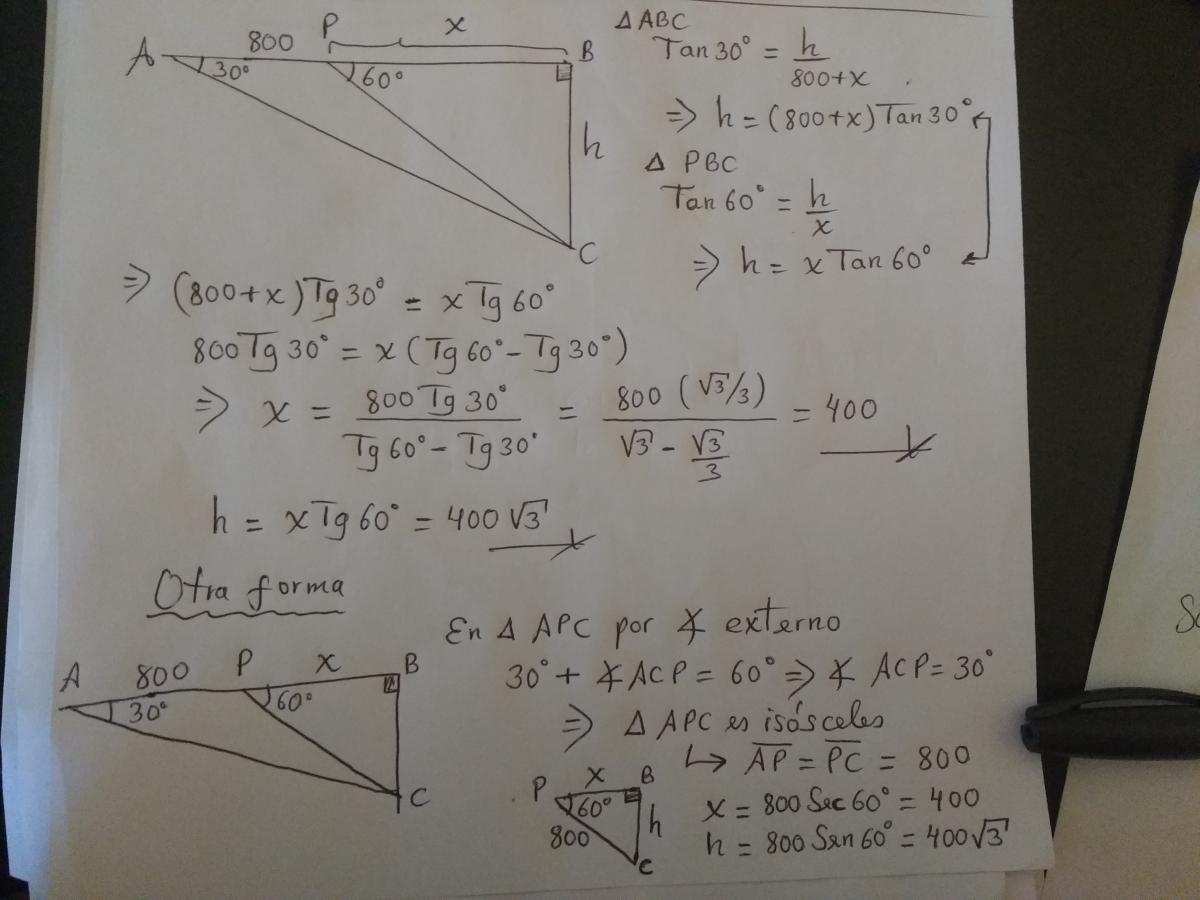 A 800 P x B
30° 60°
h
C
Δ ABC
Tan 30° = h / 800+x
⇒ h = (800+x) Tan 30°
Δ PBC
Tan 60° = h / x
⇒ h = x Tan 60°
⇒ (800+x) Tg 30° = x Tg 60°
800 Tg 30° = x (Tg 60° - Tg 30°)
⇒ x = 800 Tg 30° / Tg 60° - Tg 30° = 800 (√3/3) / √3 - √3/3 = 400
h = x Tg 60° = 400 √3
Otra forma
A 800 P x B
30° 60°
C
En Δ APC por ∡ externo
30° + ∡ ACP = 60° ⇒ ∡ ACP = 30°
⇒ Δ APC es isósceles
↳ AP = PC = 800
P x B
60° h
800
C
x = 800 Sec 60° = 400
h = 800 Sen 60° = 400√3